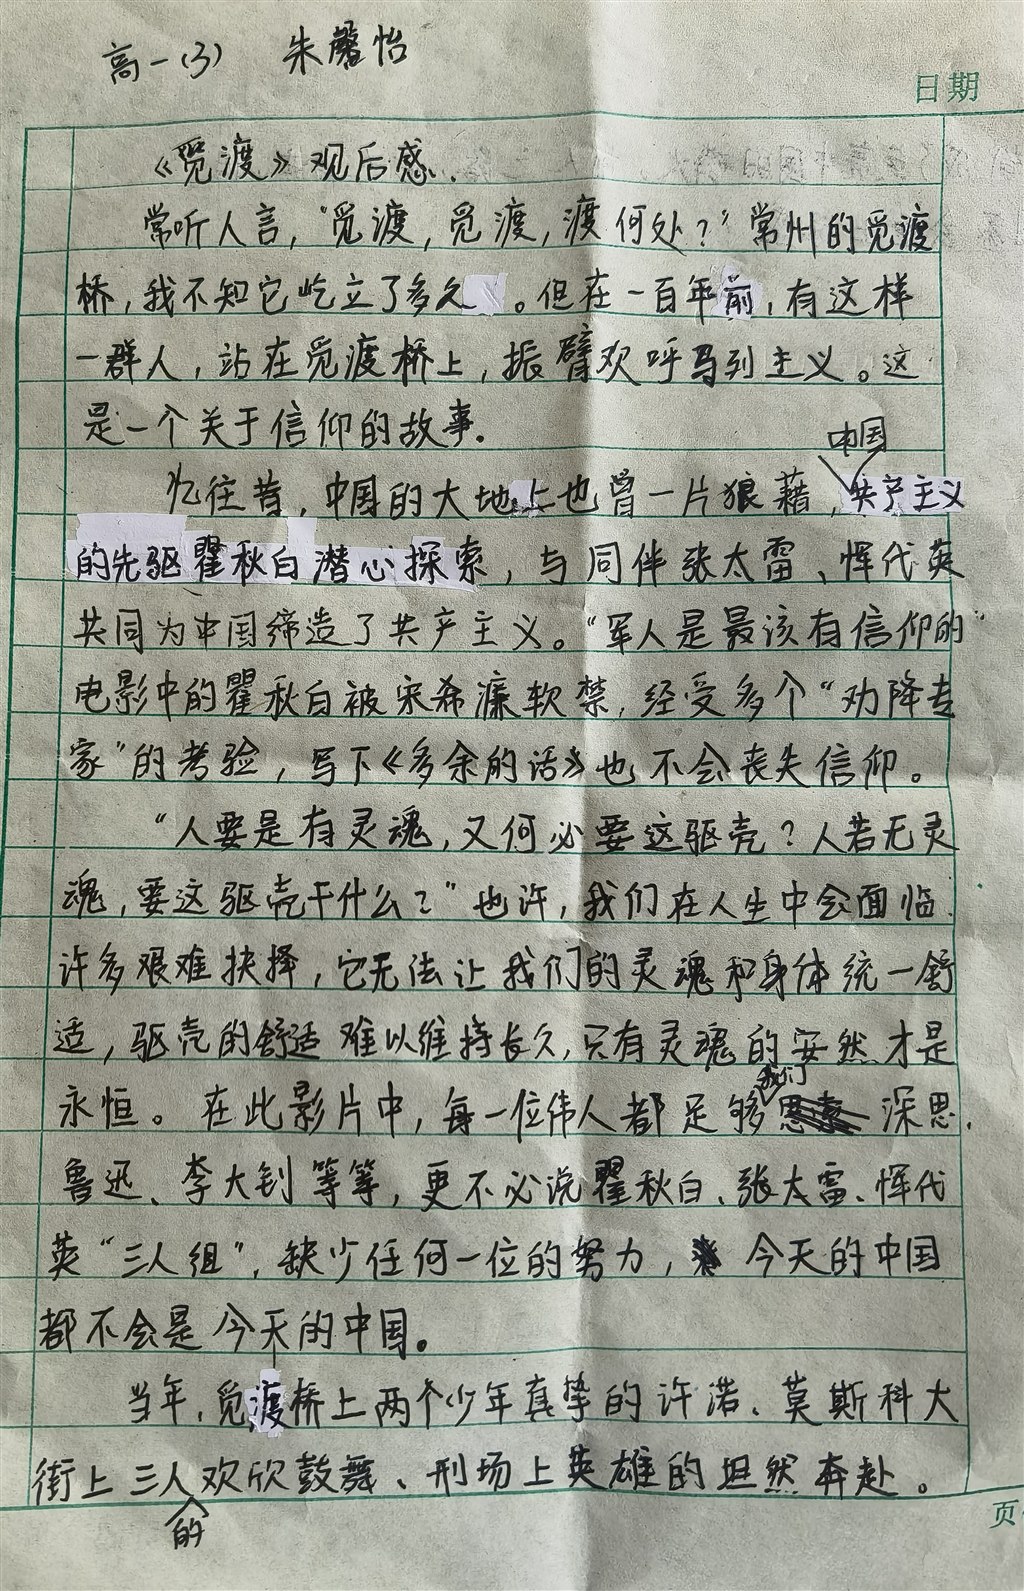 高一(3) 朱馨怡
日期
《觅渡》观后感.
常听人言，“觅渡，觅渡，渡何处？”常州的觅渡
桥，我不知它屹立了多久。但在一百年前，有这样
一群人，站在觅渡桥上，振臂欢呼马列主义。这
是一个关于信仰的故事.
中国
忆往昔，中国的大地上也曾一片狼藉，共产主义
的先驱瞿秋白潜心探索，与同伴张太雷、恽代英
共同为中国缔造了共产主义。“军人是最该有信仰的”
电影中的瞿秋白被宋希濂软禁，经受多个“劝降专
家”的考验，写下《多余的话》也不会丧失信仰。
“人要是有灵魂，又何必要这驱壳？人若无灵
魂，要这驱壳干什么？”也许，我们在人生中会面临
许多艰难抉择，它无法让我们的灵魂和身体统一舒
适，驱壳的舒适难以维持长久，只有灵魂的安然才是
我们
永恒。在此影片中，每一位伟人都足够深思.
鲁迅、李大钊等等，更不必说瞿秋白、张太雷、恽代
英“三人组”，缺少任何一位的努力，今天的中国
都不会是今天的中国。
当年，觅渡桥上两个少年真挚的许诺、莫斯科大
街上三人欢欣鼓舞、刑场上英雄的坦然奔赴。
的
页